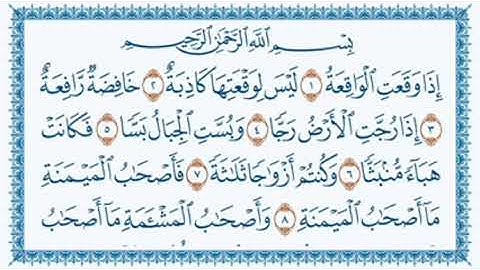 بِسْمِ ٱللَّهِ ٱلرَّحْمَٰنِ ٱلرَّحِيمِ
إِذَا وَقَعَتِ ٱلْوَاقِعَةُ ١ لَيْسَ لِوَقْعَتِهَا كَاذِبَةٌ ٢ خَافِضَةٌ رَّافِعَةٌ
٣ إِذَا رُجَّتِ ٱلْأَرْضُ رَجًّا ٤ وَبُسَّتِ ٱلْجِبَالُ بَسًّا ٥ فَكَانَتْ
هَبَآءً مُّنۢبَثًّا ٦ وَكُنتُمْ أَزْوَاجًا ثَلَاثَةً ٧ فَأَصْحَابُ ٱلْمَيْمَنَةِ
مَآ أَصْحَابُ ٱلْمَيْمَنَةِ ٨ وَأَصْحَابُ ٱلْمَشْـَٔمَةِ مَآ أَصْحَابُ